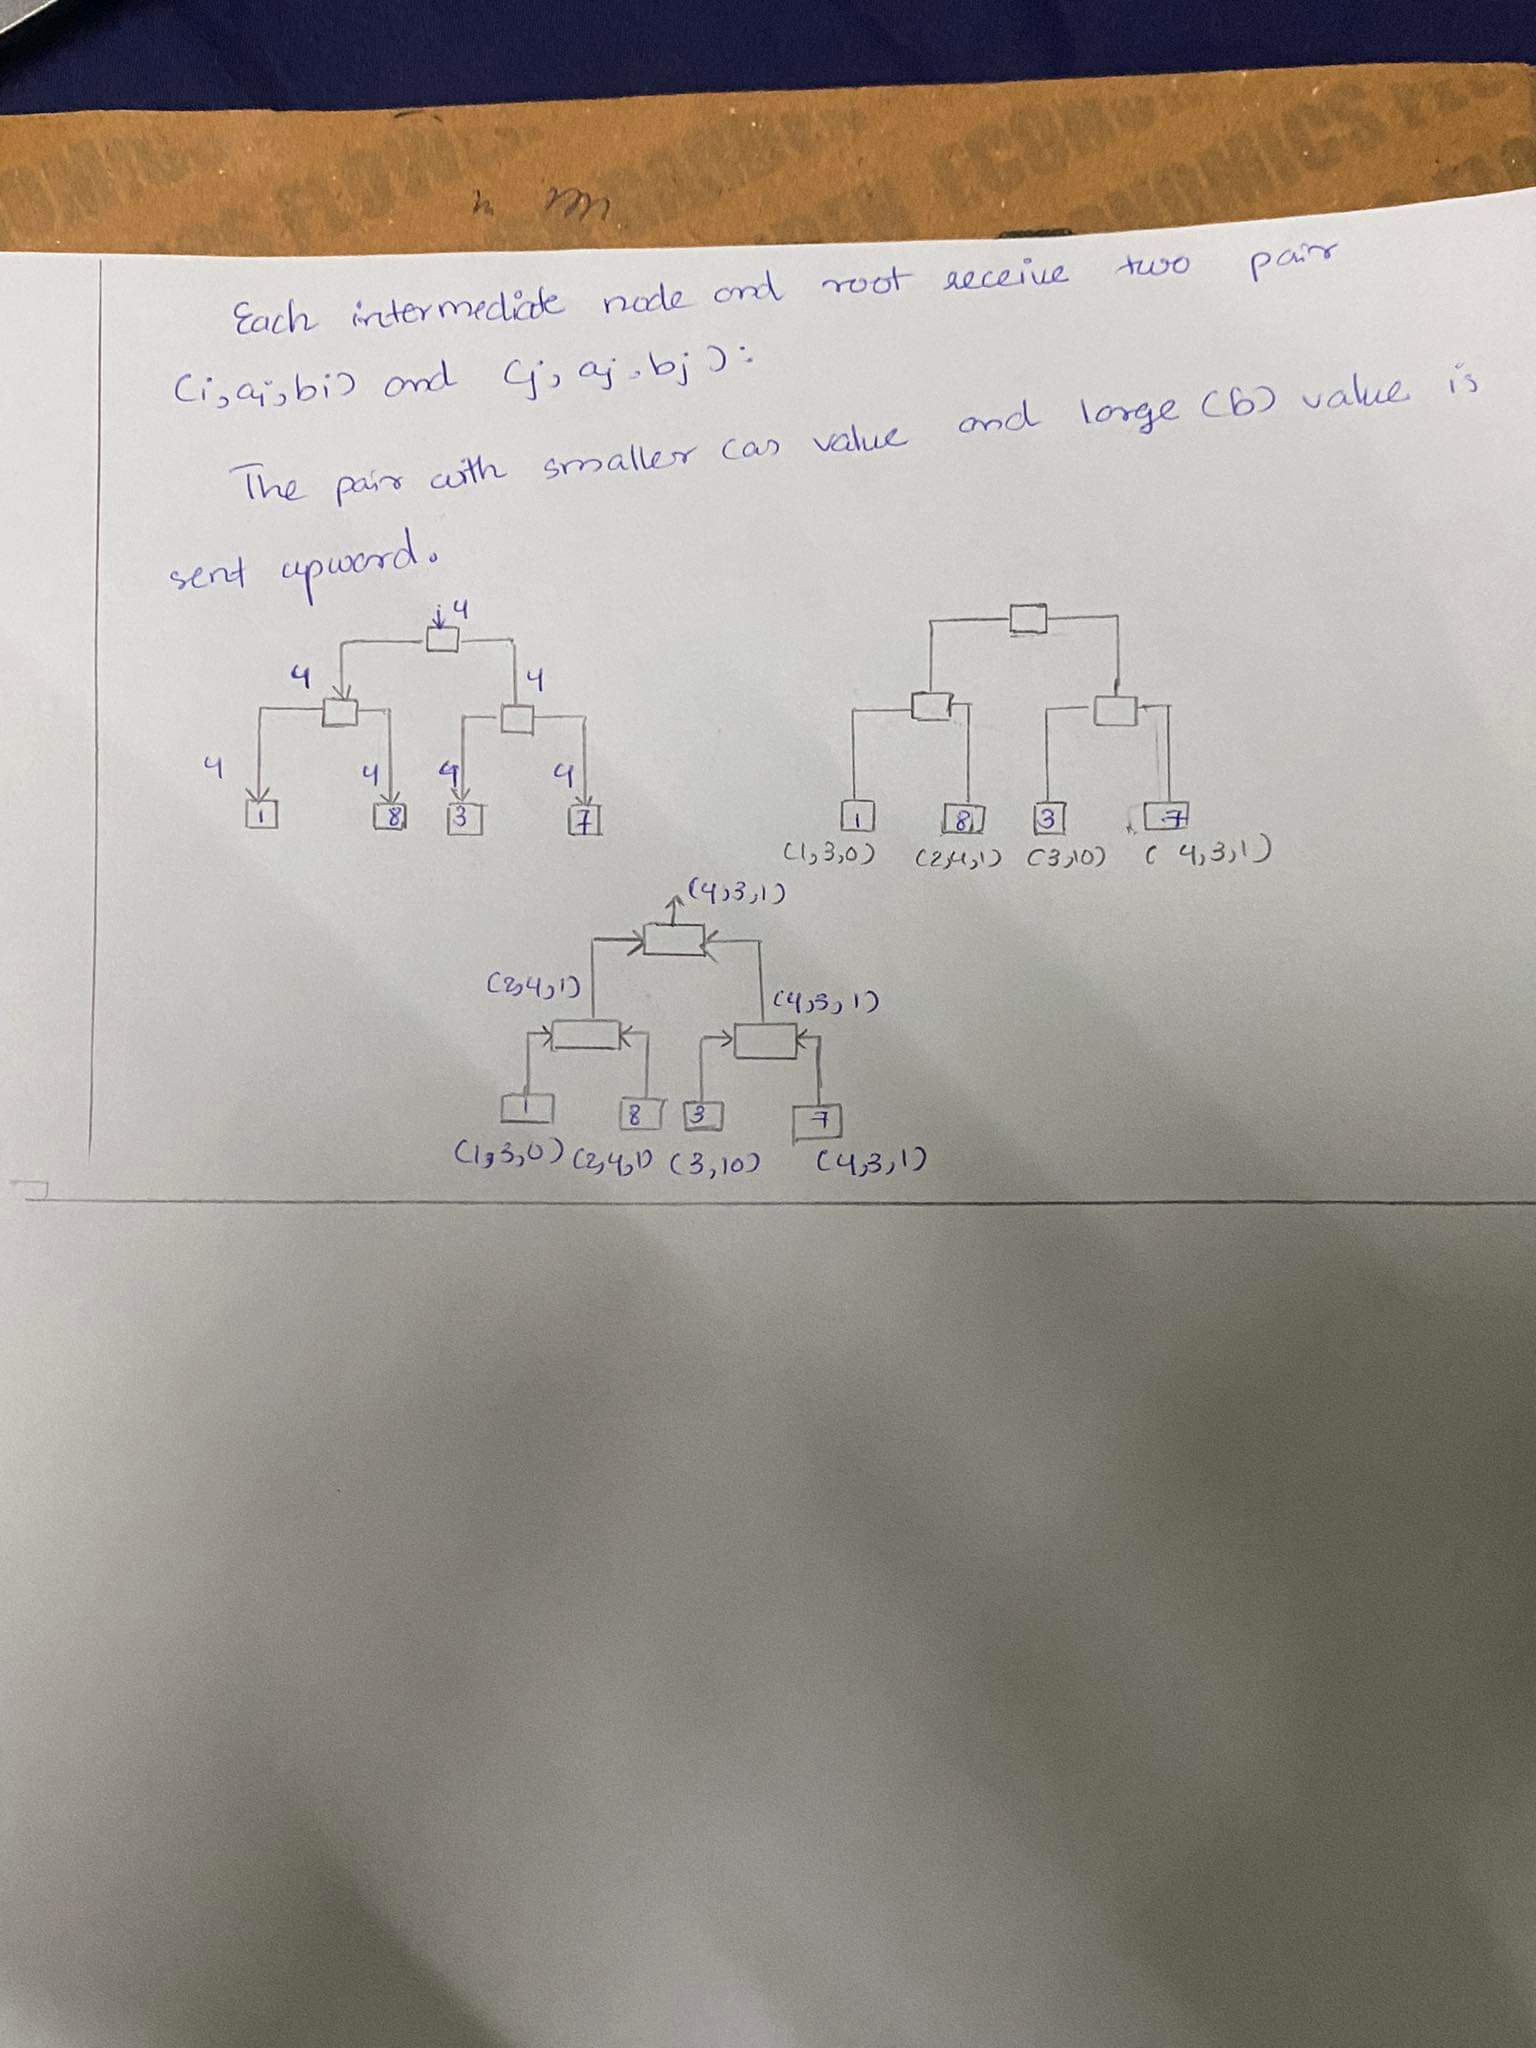 ECONOMICS
Each intermediate node and root receive two pair
(i, ai, bi) and (j, aj, bj):
The pair with smaller (a) value and large (b) value is
sent upward.
4
4 4
4 4 4 4
1 8 3 7
1 8 3 7
(1,3,0) (2,4,1) (3,10) (4,3,1)
(4,3,1)
(2,4,1) (4,3,1)
1 8 3 7
(1,3,0) (2,4,1) (3,10) (4,3,1)